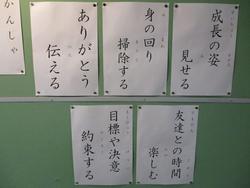 成長の姿
見せる
身の回り
掃除する
ありがとう
伝える
かんしゃ
友達との時間
楽しむ
目標や決意
約束する